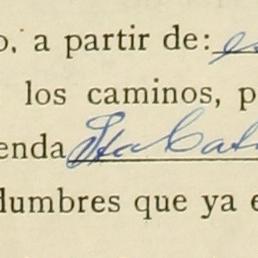 o, a partir de: es
los caminos, p
enda Sta Cat
dumbres que ya e